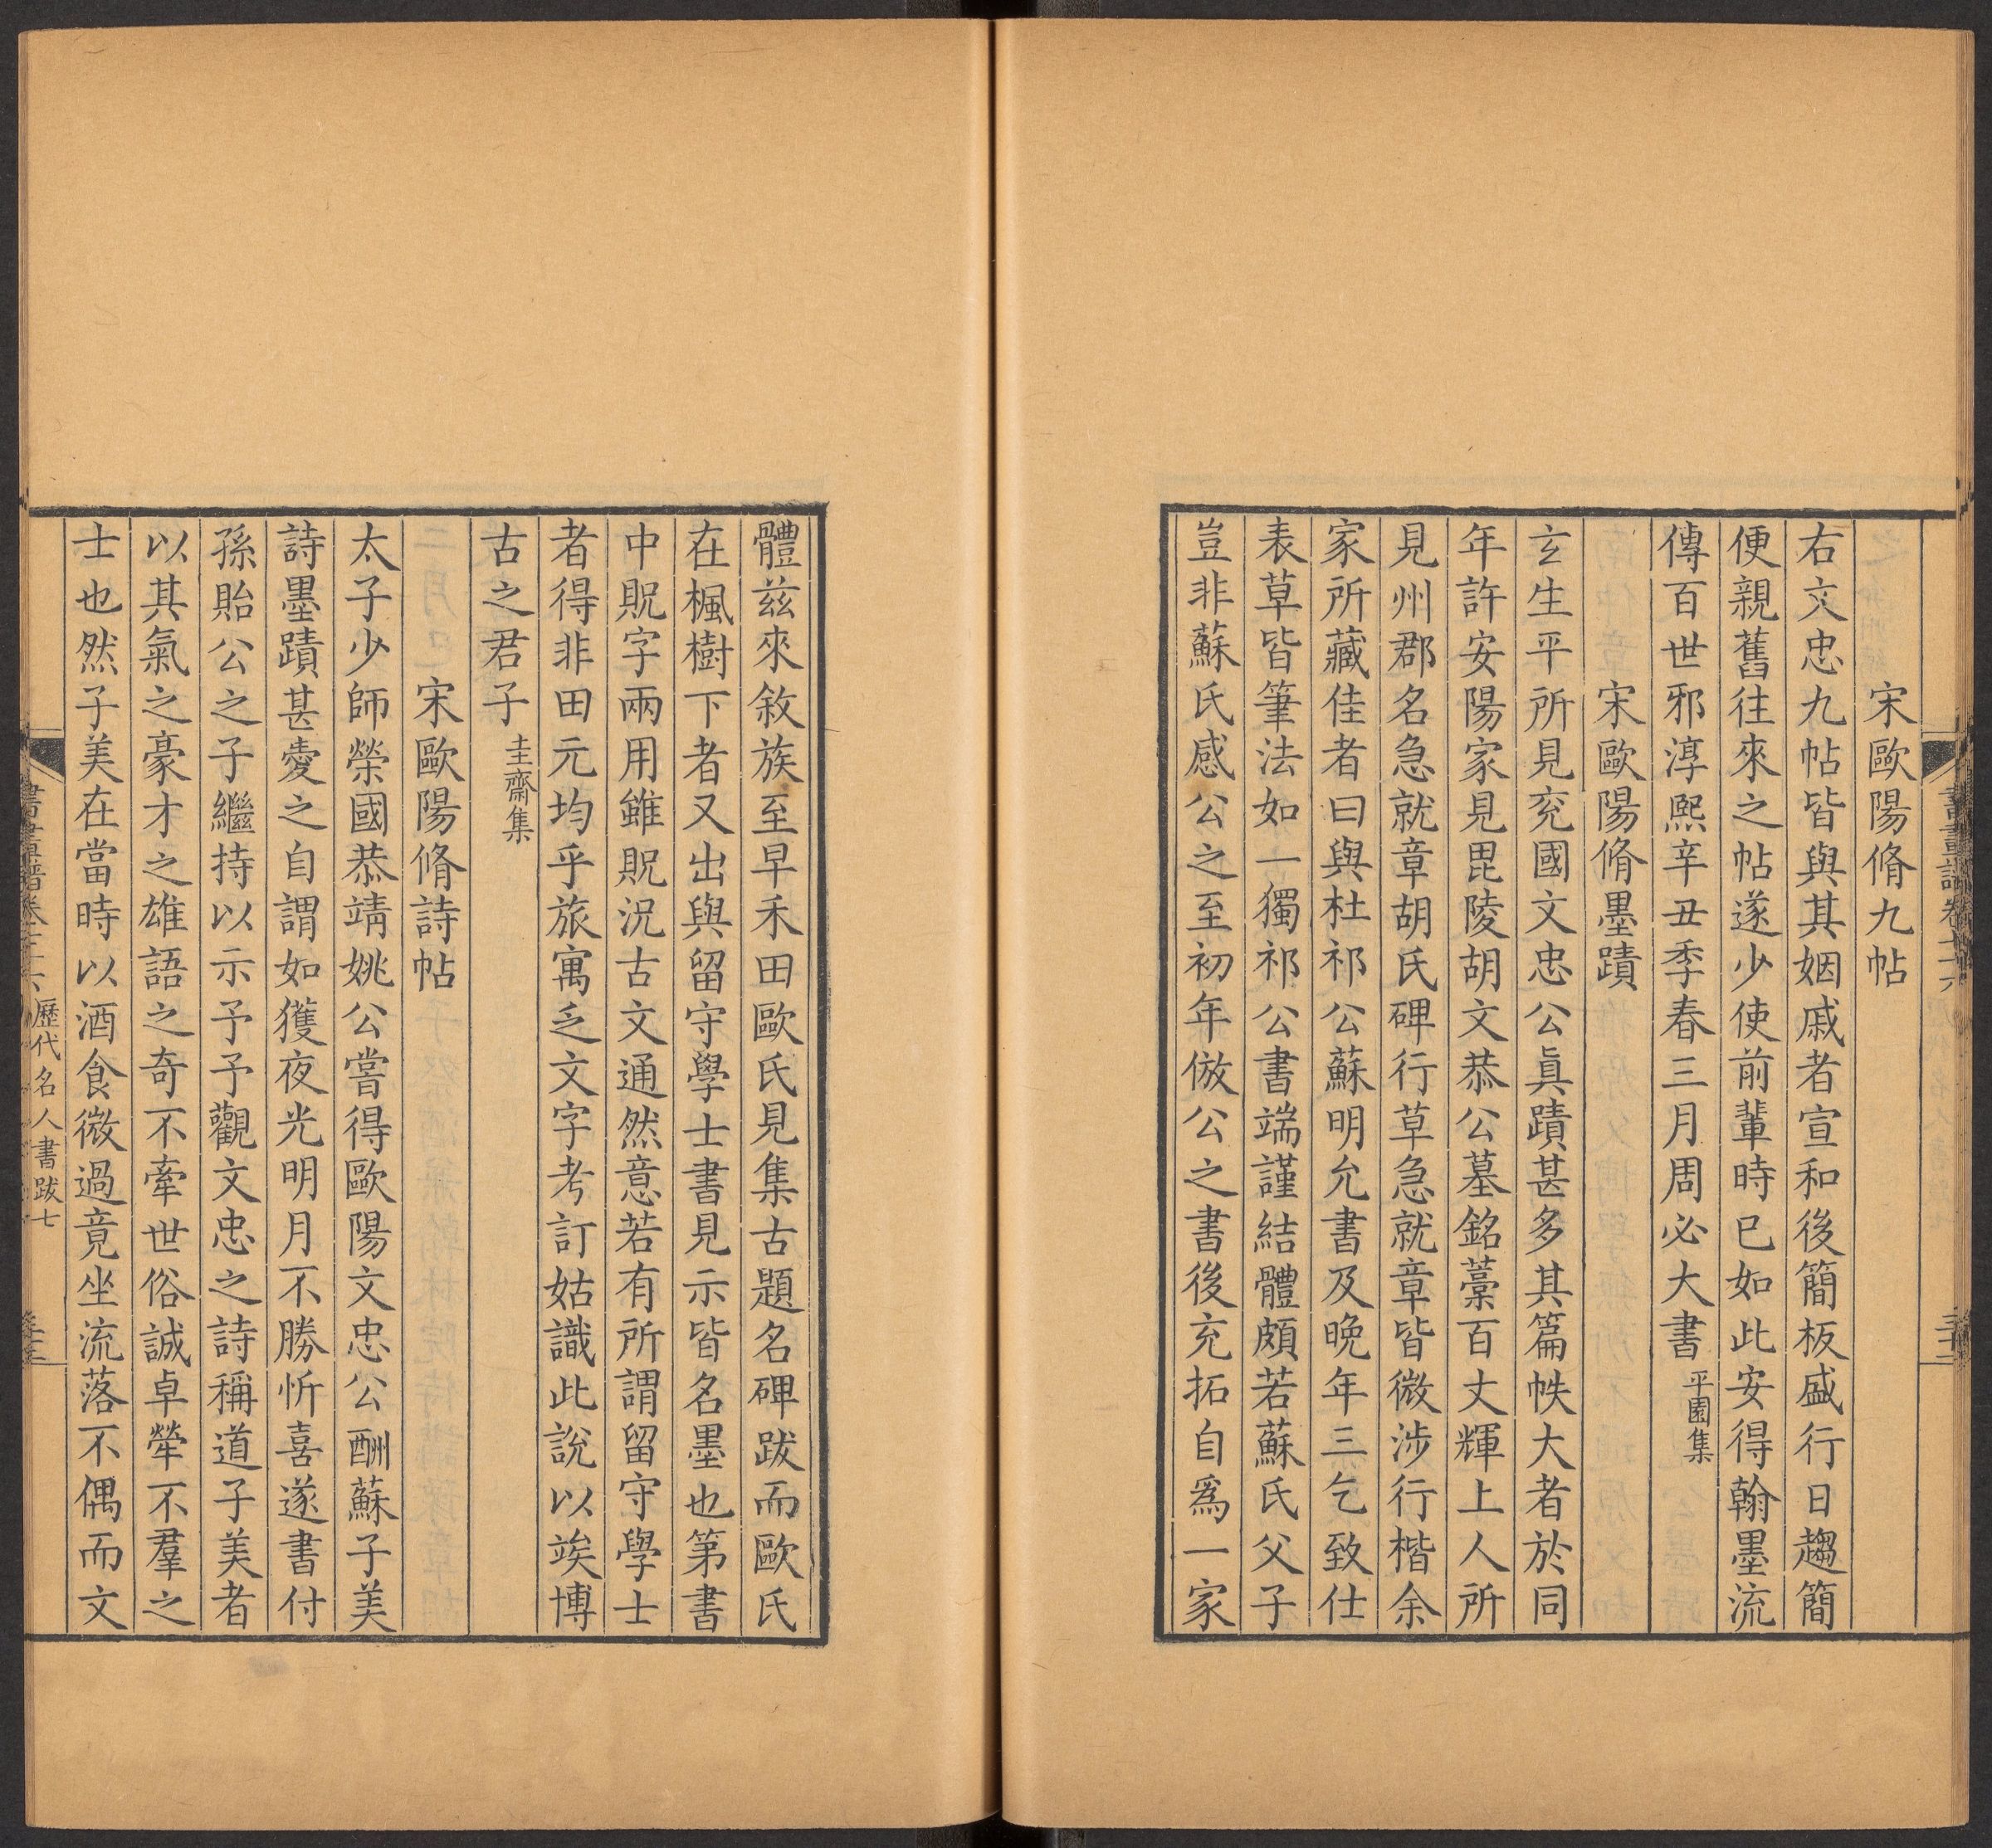 宋歐陽脩九帖
右文忠九帖皆與其姻戚者宣和後簡板盛行日趨簡
便親舊往來之帖遂少使前輩時已如此安得翰墨流
傳百世邪淳熙辛丑季春三月周必大書平園集
宋歐陽脩墨蹟
玄生平所見兖國文忠公眞蹟甚多其篇帙大者於同
年許安陽家見毘陵胡文恭公墓銘藁百丈輝上人所
見州郡名急就章胡氏碑行草急就章皆微涉行楷余
家所藏佳者曰與杜祁公蘇明允書及晚年三乞致仕
表草皆筆法如一獨祁公書端謹結體頗若蘇氏父子
豈非蘇氏感公之至初年倣公之書後充拓自爲一家
體兹來敘族至早禾田歐氏見集古題名碑跋而歐氏
在楓樹下者又出與留守學士書見示皆名墨也第書
中貺字兩用雖貺況古文通然意若有所謂留守學士
者得非田元均乎旅寓乏文字考訂姑識此說以竢博
古之君子圭齋集
宋歐陽脩詩帖
太子少師榮國恭靖姚公嘗得歐陽文忠公酬蘇子美
詩墨蹟甚愛之自謂如獲夜光明月不勝忻喜遂書付
孫貽公之子繼持以示予予觀文忠之詩稱道子美者
以其氣之豪才之雄語之奇不牽世俗誠卓犖不羣之
士也然子美在當時以酒食微過竟坐流落不偶而文
歷代名人書跋七